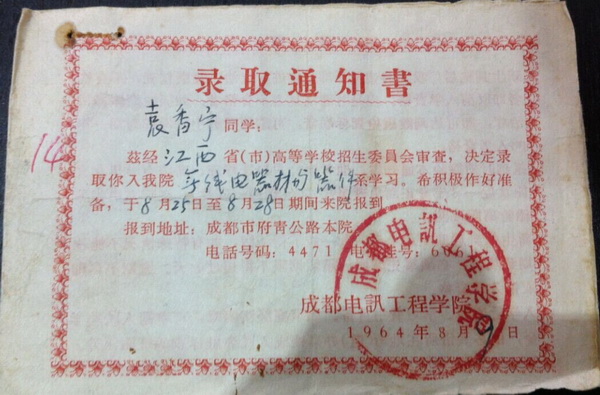 录取通知書
袁香宁同学:
兹经江西省(市)高等学校招生委员会审查，决定录
取你入我院无线电器材与器件系学习。希积极作好准
备，于8月25日至8月28日期间来院报到。
报到地址：成都市府青公路本院
电話号码：4471 电 挂号：6061
成都电訊工程学院
1964年8月9日
成都电訊工程学院
14